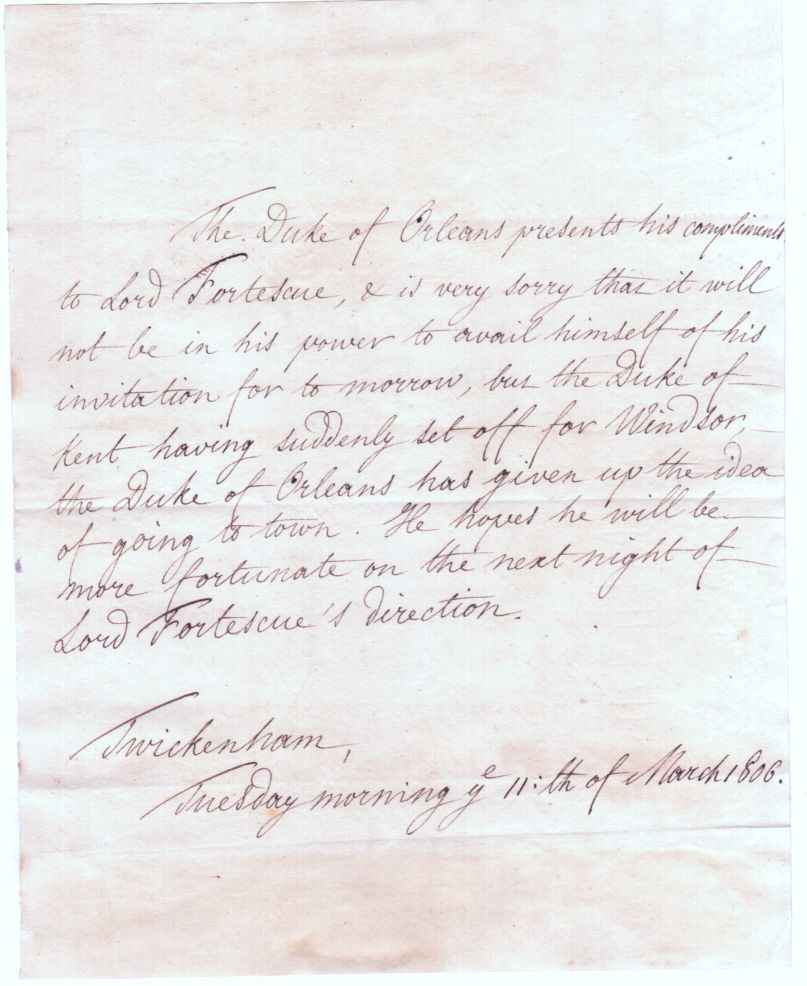 The Duke of Orleans presents his compliments
to Lord Fortescue, & is very sorry that it will
not be in his power to avail himself of his
invitation for to morrow, but the Duke of
Kent having suddenly set off for Windsor,
the Duke of Orleans has given up the idea
of going to town. He hopes he will be
more fortunate on the next night of
Lord Fortescue's direction.
Twickenham,
Tuesday morning ye 11:th of March 1806.